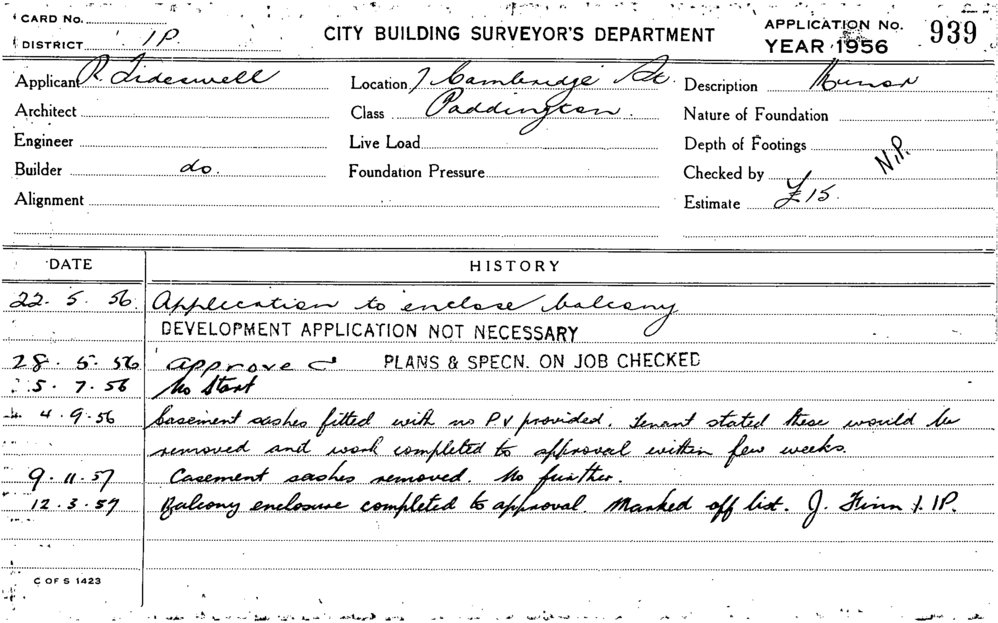 CARD No.
DISTRICT 1P.
CITY BUILDING SURVEYOR'S DEPARTMENT
APPLICATION No. 939
YEAR 1956
Applicant R. Tideswell
Location 7 Cambridge St.
Description Minor
Architect
Class Paddington.
Nature of Foundation
Engineer
Live Load
Depth of Footings
N.P.
Builder do.
Foundation Pressure
Checked by
Alignment
Estimate £15.
DATE HISTORY
22. 5. 56. Application to enclose balcony
DEVELOPMENT APPLICATION NOT NECESSARY
28. 5. 56 Approved PLANS & SPECN. ON JOB CHECKED
5. 7. 56 No Start
4. 9. 56 Casement sashes fitted with no P.V provided. Tenant stated these would be
removed and work completed to approval within few weeks.
9. 11. 57 Casement sashes removed. No further.
12. 3. 57 Balcony enclosure completed to approval. Marked off list. J. Finn 1P.
C OF S 1423